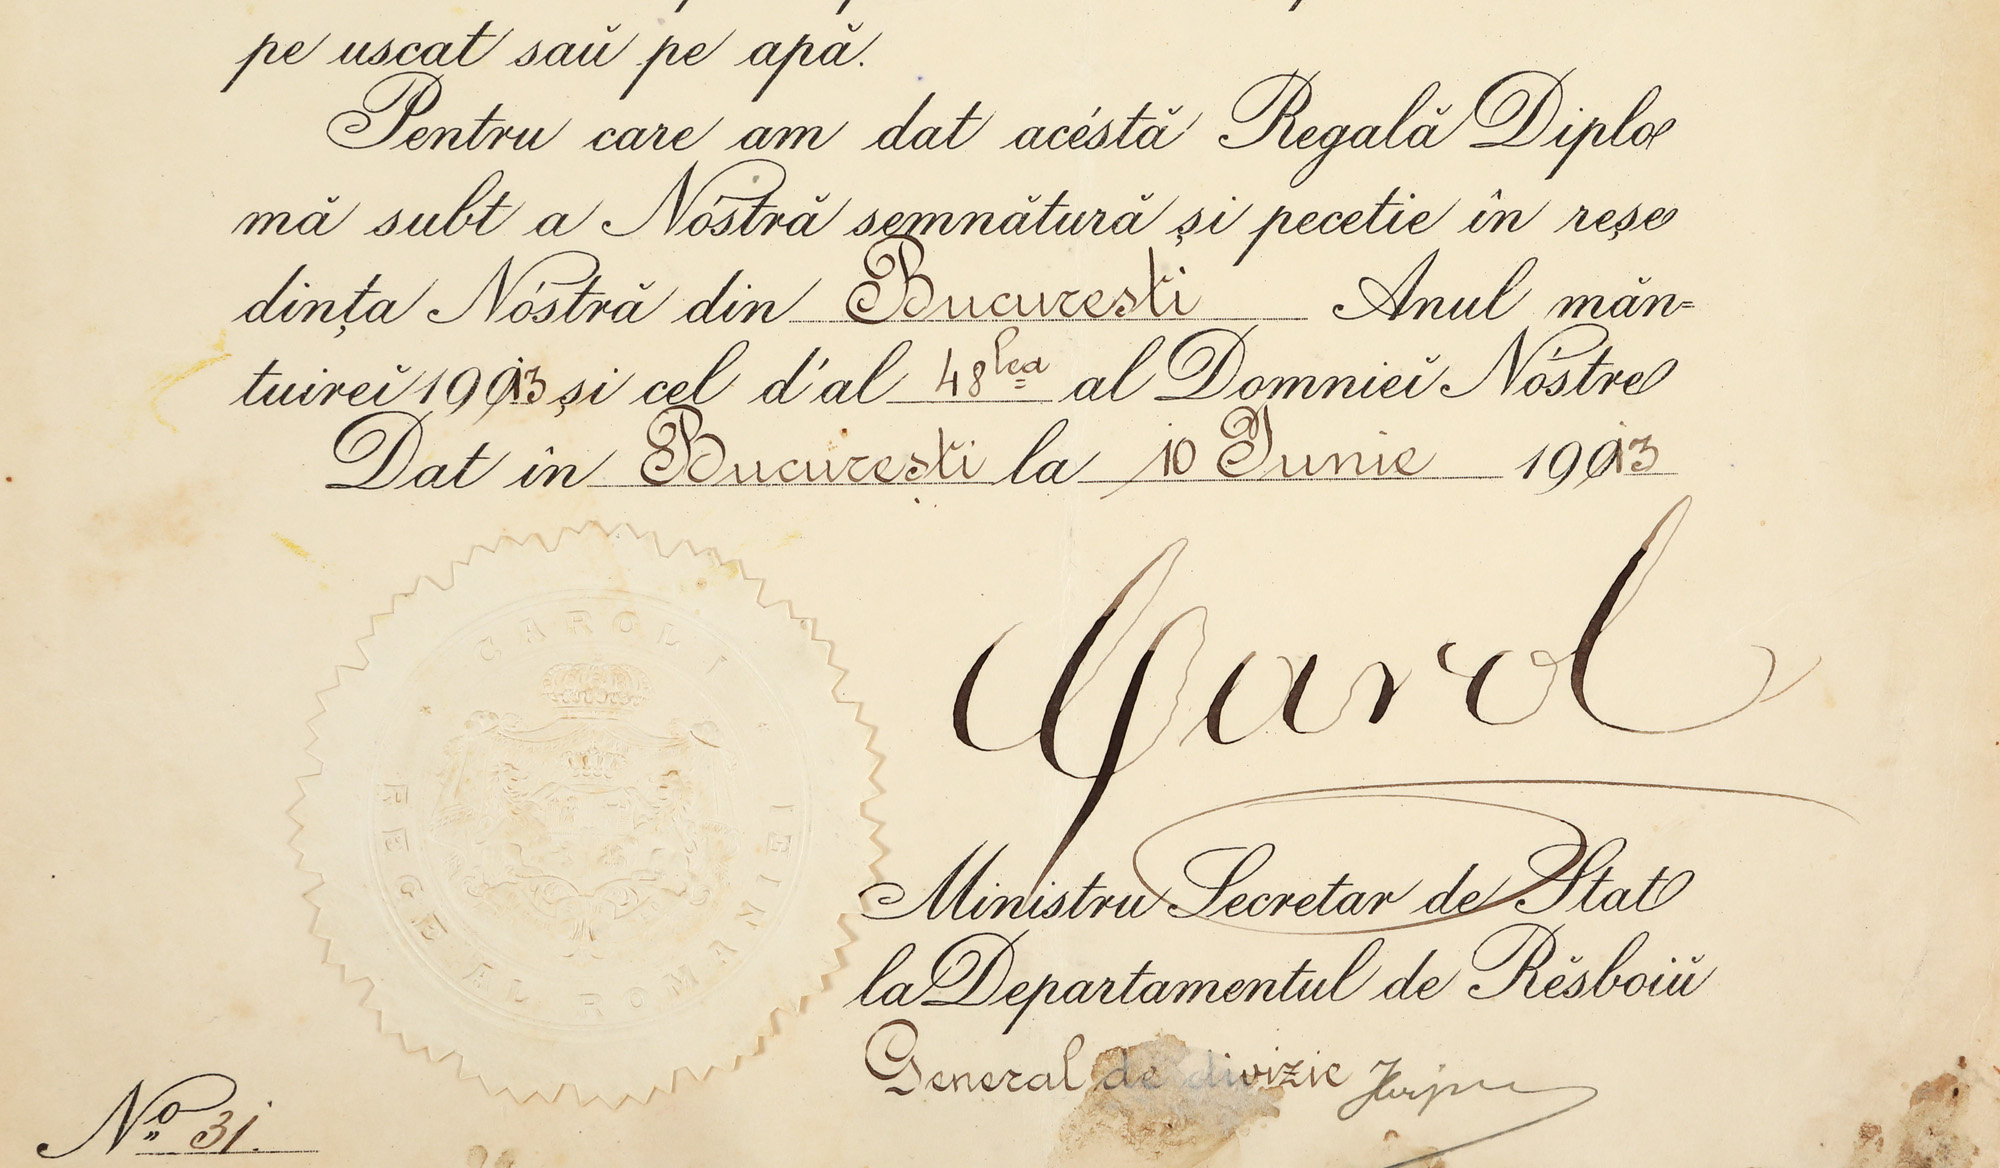 pe uscat saŭ pe apă.
Pentru care am dat acéstă Regală Diplo
mă subt a Nóstră semnătură și pecetie în reșe
dința Nóstră din Bucuresti Anul măn=
tuireĭ 1913 și cel d'al 48lea al Domnieĭ Nóstre
Dat în Bucuresti la 10 Junie 1913
CAROL I
REGE AL ROMANIEI
Carol
Ministru Secretar de Stat
la Departamentul de Rĕsboiŭ
General de divizie
No 31.